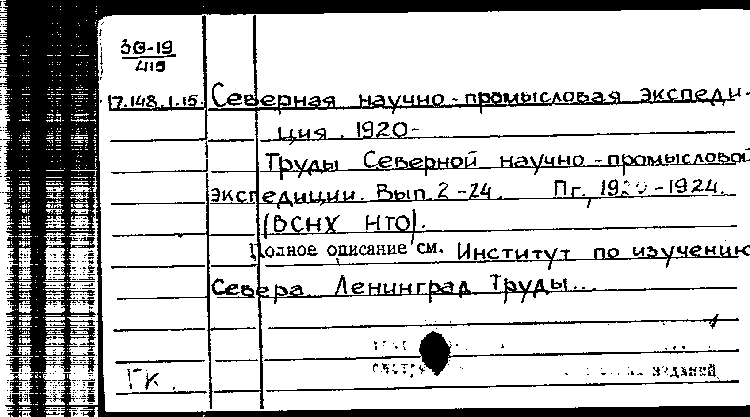 38-19
17.148.1.15. Северная научно-промысловая экспеди-
ция. 1920-
Труды Северной научно-промысловой
экспедиции. Вып. 2-24. Пг., -1924.
(ВСНХ НТО).
Полное описание см. Институт по изучению
Севера. Ленинград. Труды...
изданий
ГК.